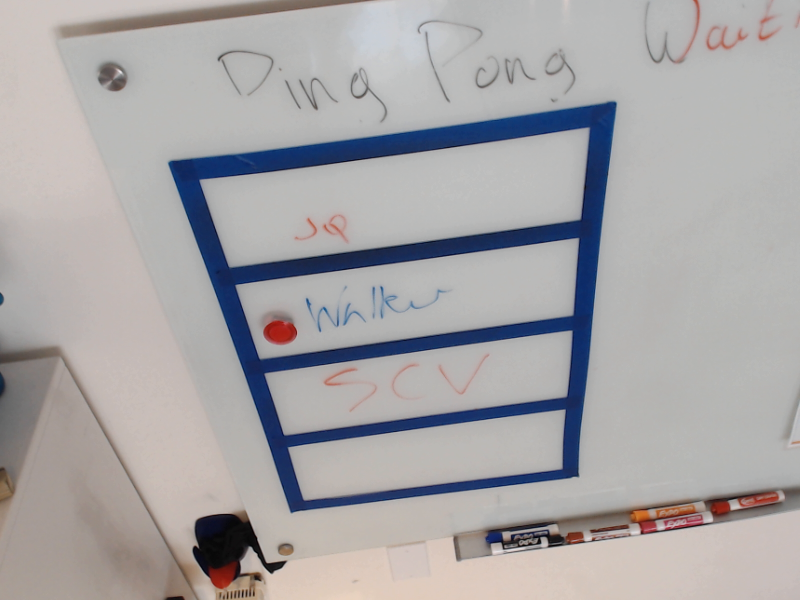 Ping Pong Wait
JQ
Walker
SCV
EXPO
EXPO
EXPO